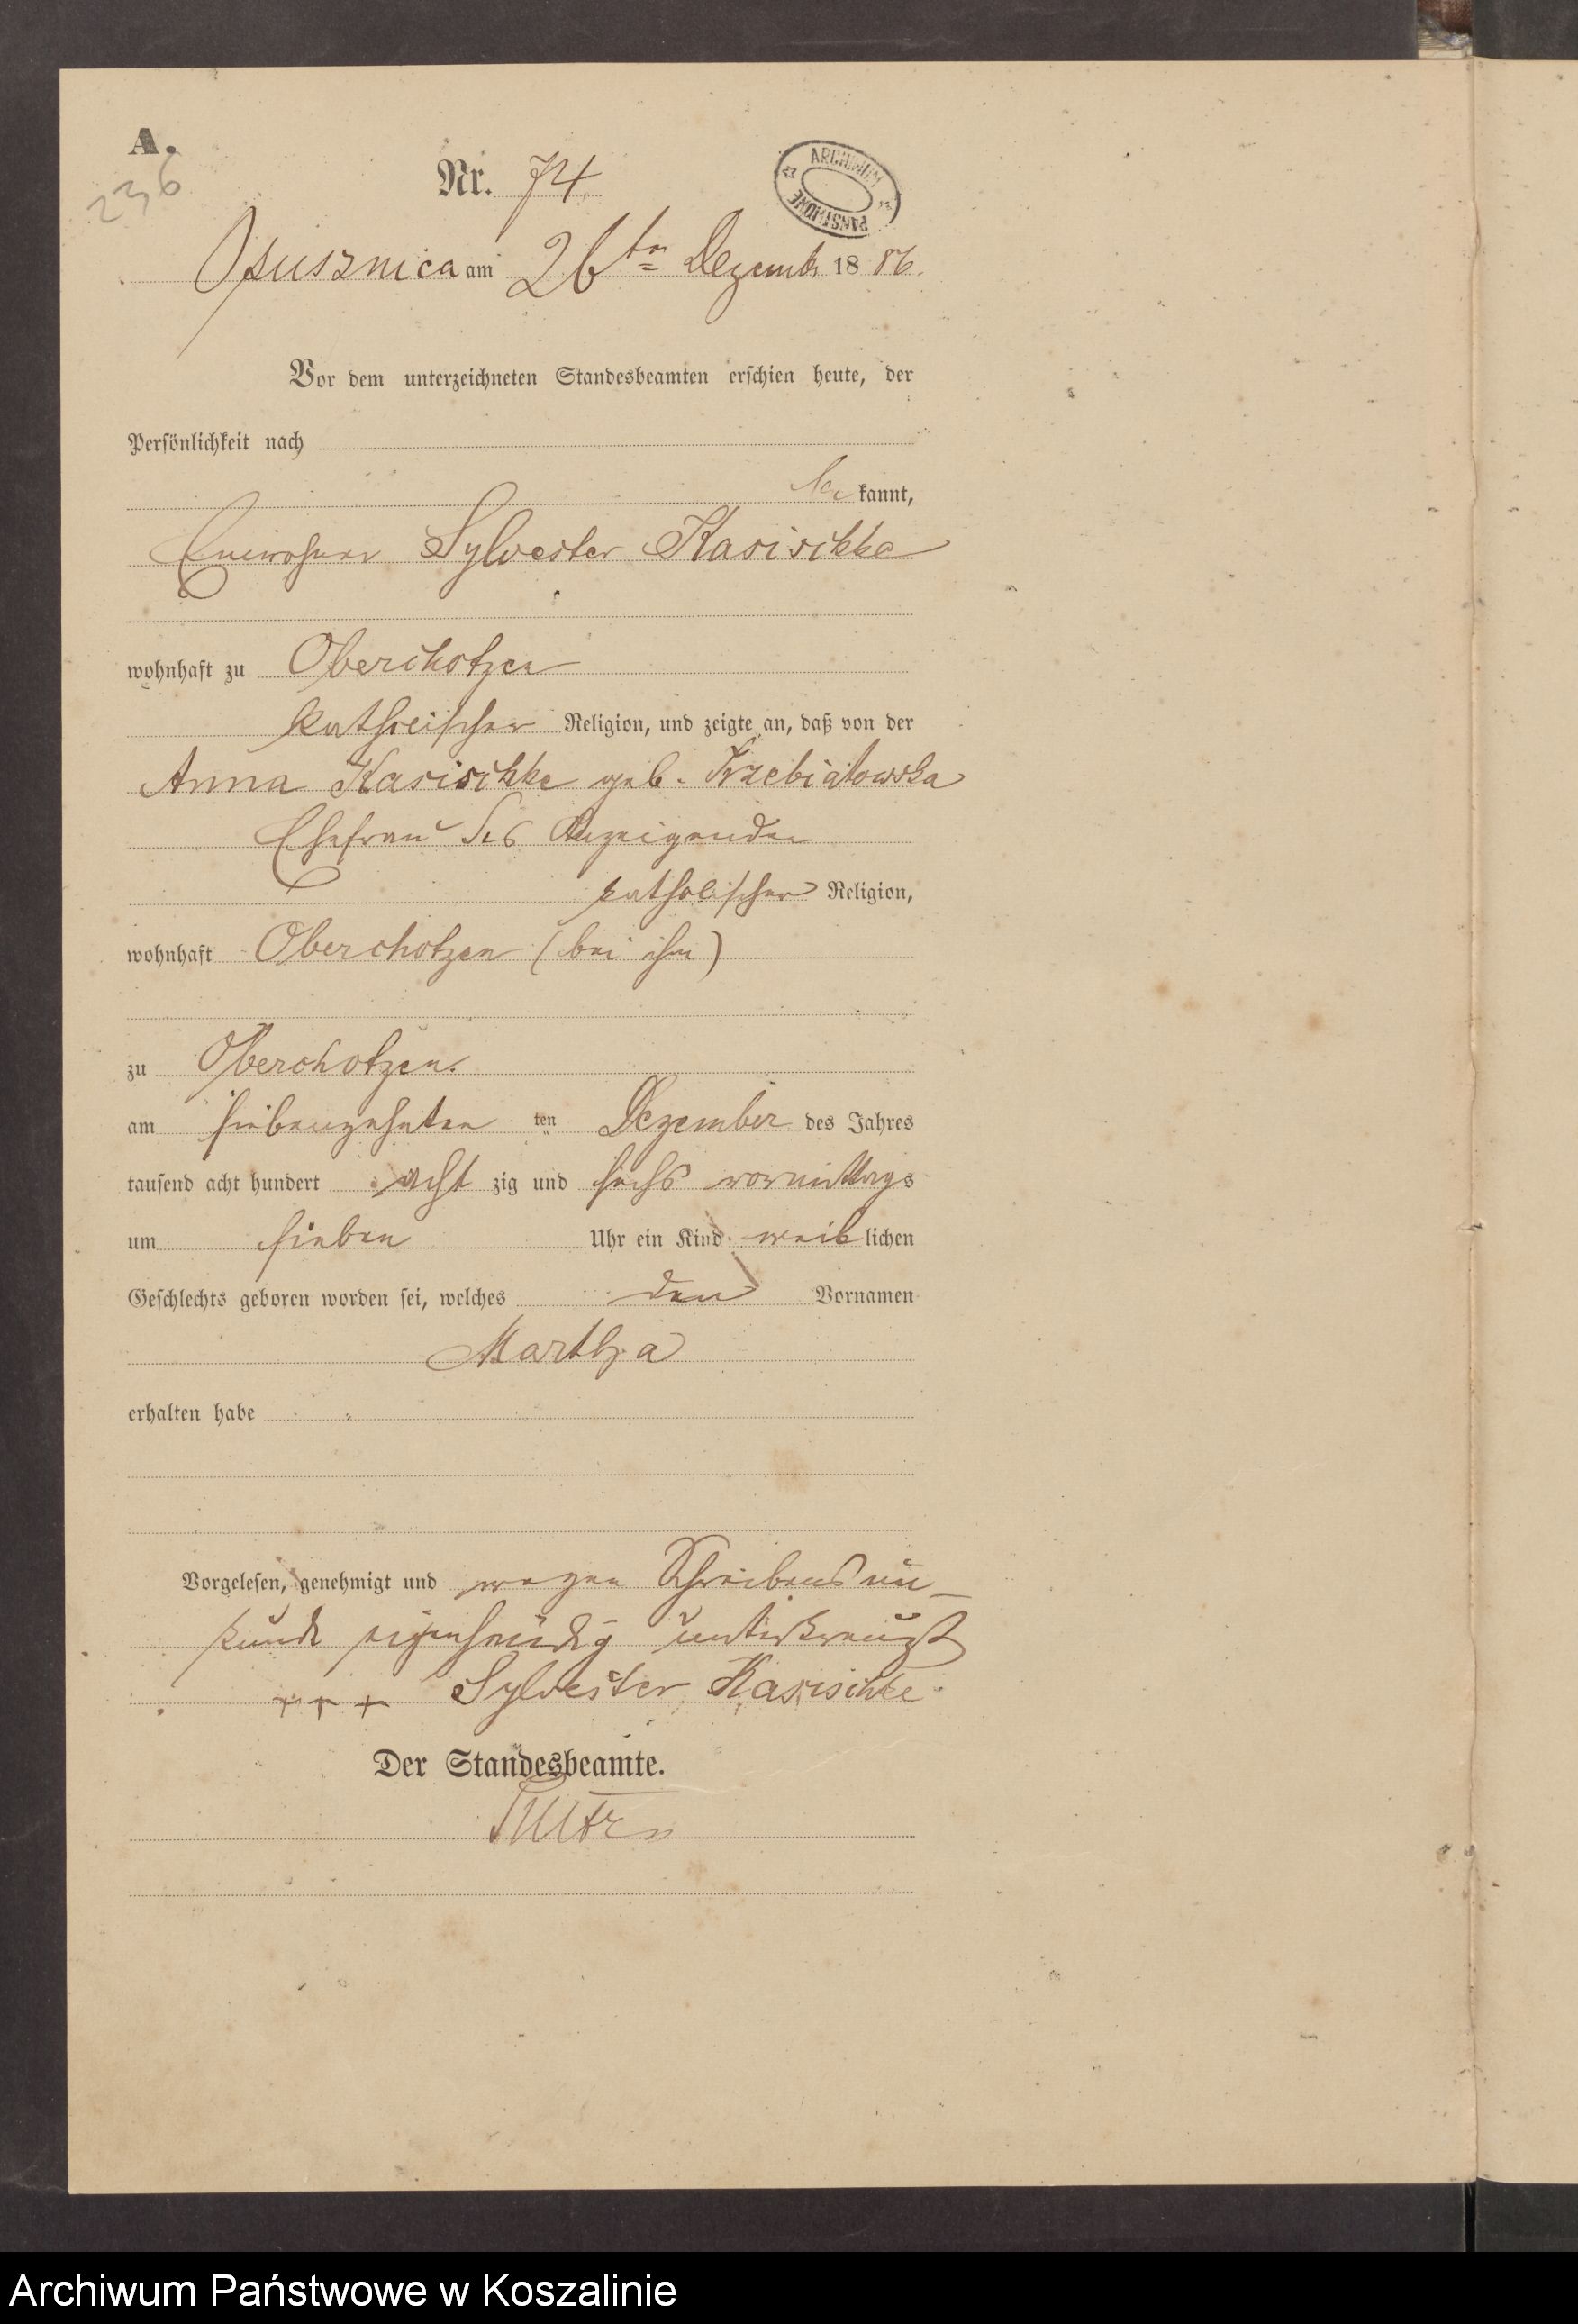 A.
236
Nr. 74
ARCHIWUM PAŃSTWOWE
Ossusznica am 26ten Dezemb. 1886.
Vor dem unterzeichneten Standesbeamten erschien heute, der
Persönlichkeit nach
be kannt,
Einwohner Sylvester Kasischke
wohnhaft zu Oberchotzen
katholischer Religion, und zeigte an, daß von der
Anna Kasischke geb. Trzebiatowska
Ehefrau des Anzeigenden
katholischer Religion,
wohnhaft Oberchotzen (bei ihm)
zu Oberchotzen.
am siebenzehnten ten Dezember des Jahres
tausend acht hundert acht zig und sechs vormittags
um sieben Uhr ein Kind weib lichen
Geschlechts geboren worden sei, welches den Vornamen
Martha
erhalten habe
Vorgelesen, genehmigt und wegen Schreibensun-
kunde eigenhändig unterkreuzt
+++ Sylvester Kasischke
Der Standesbeamte.
Archiwum Państwowe w Koszalinie